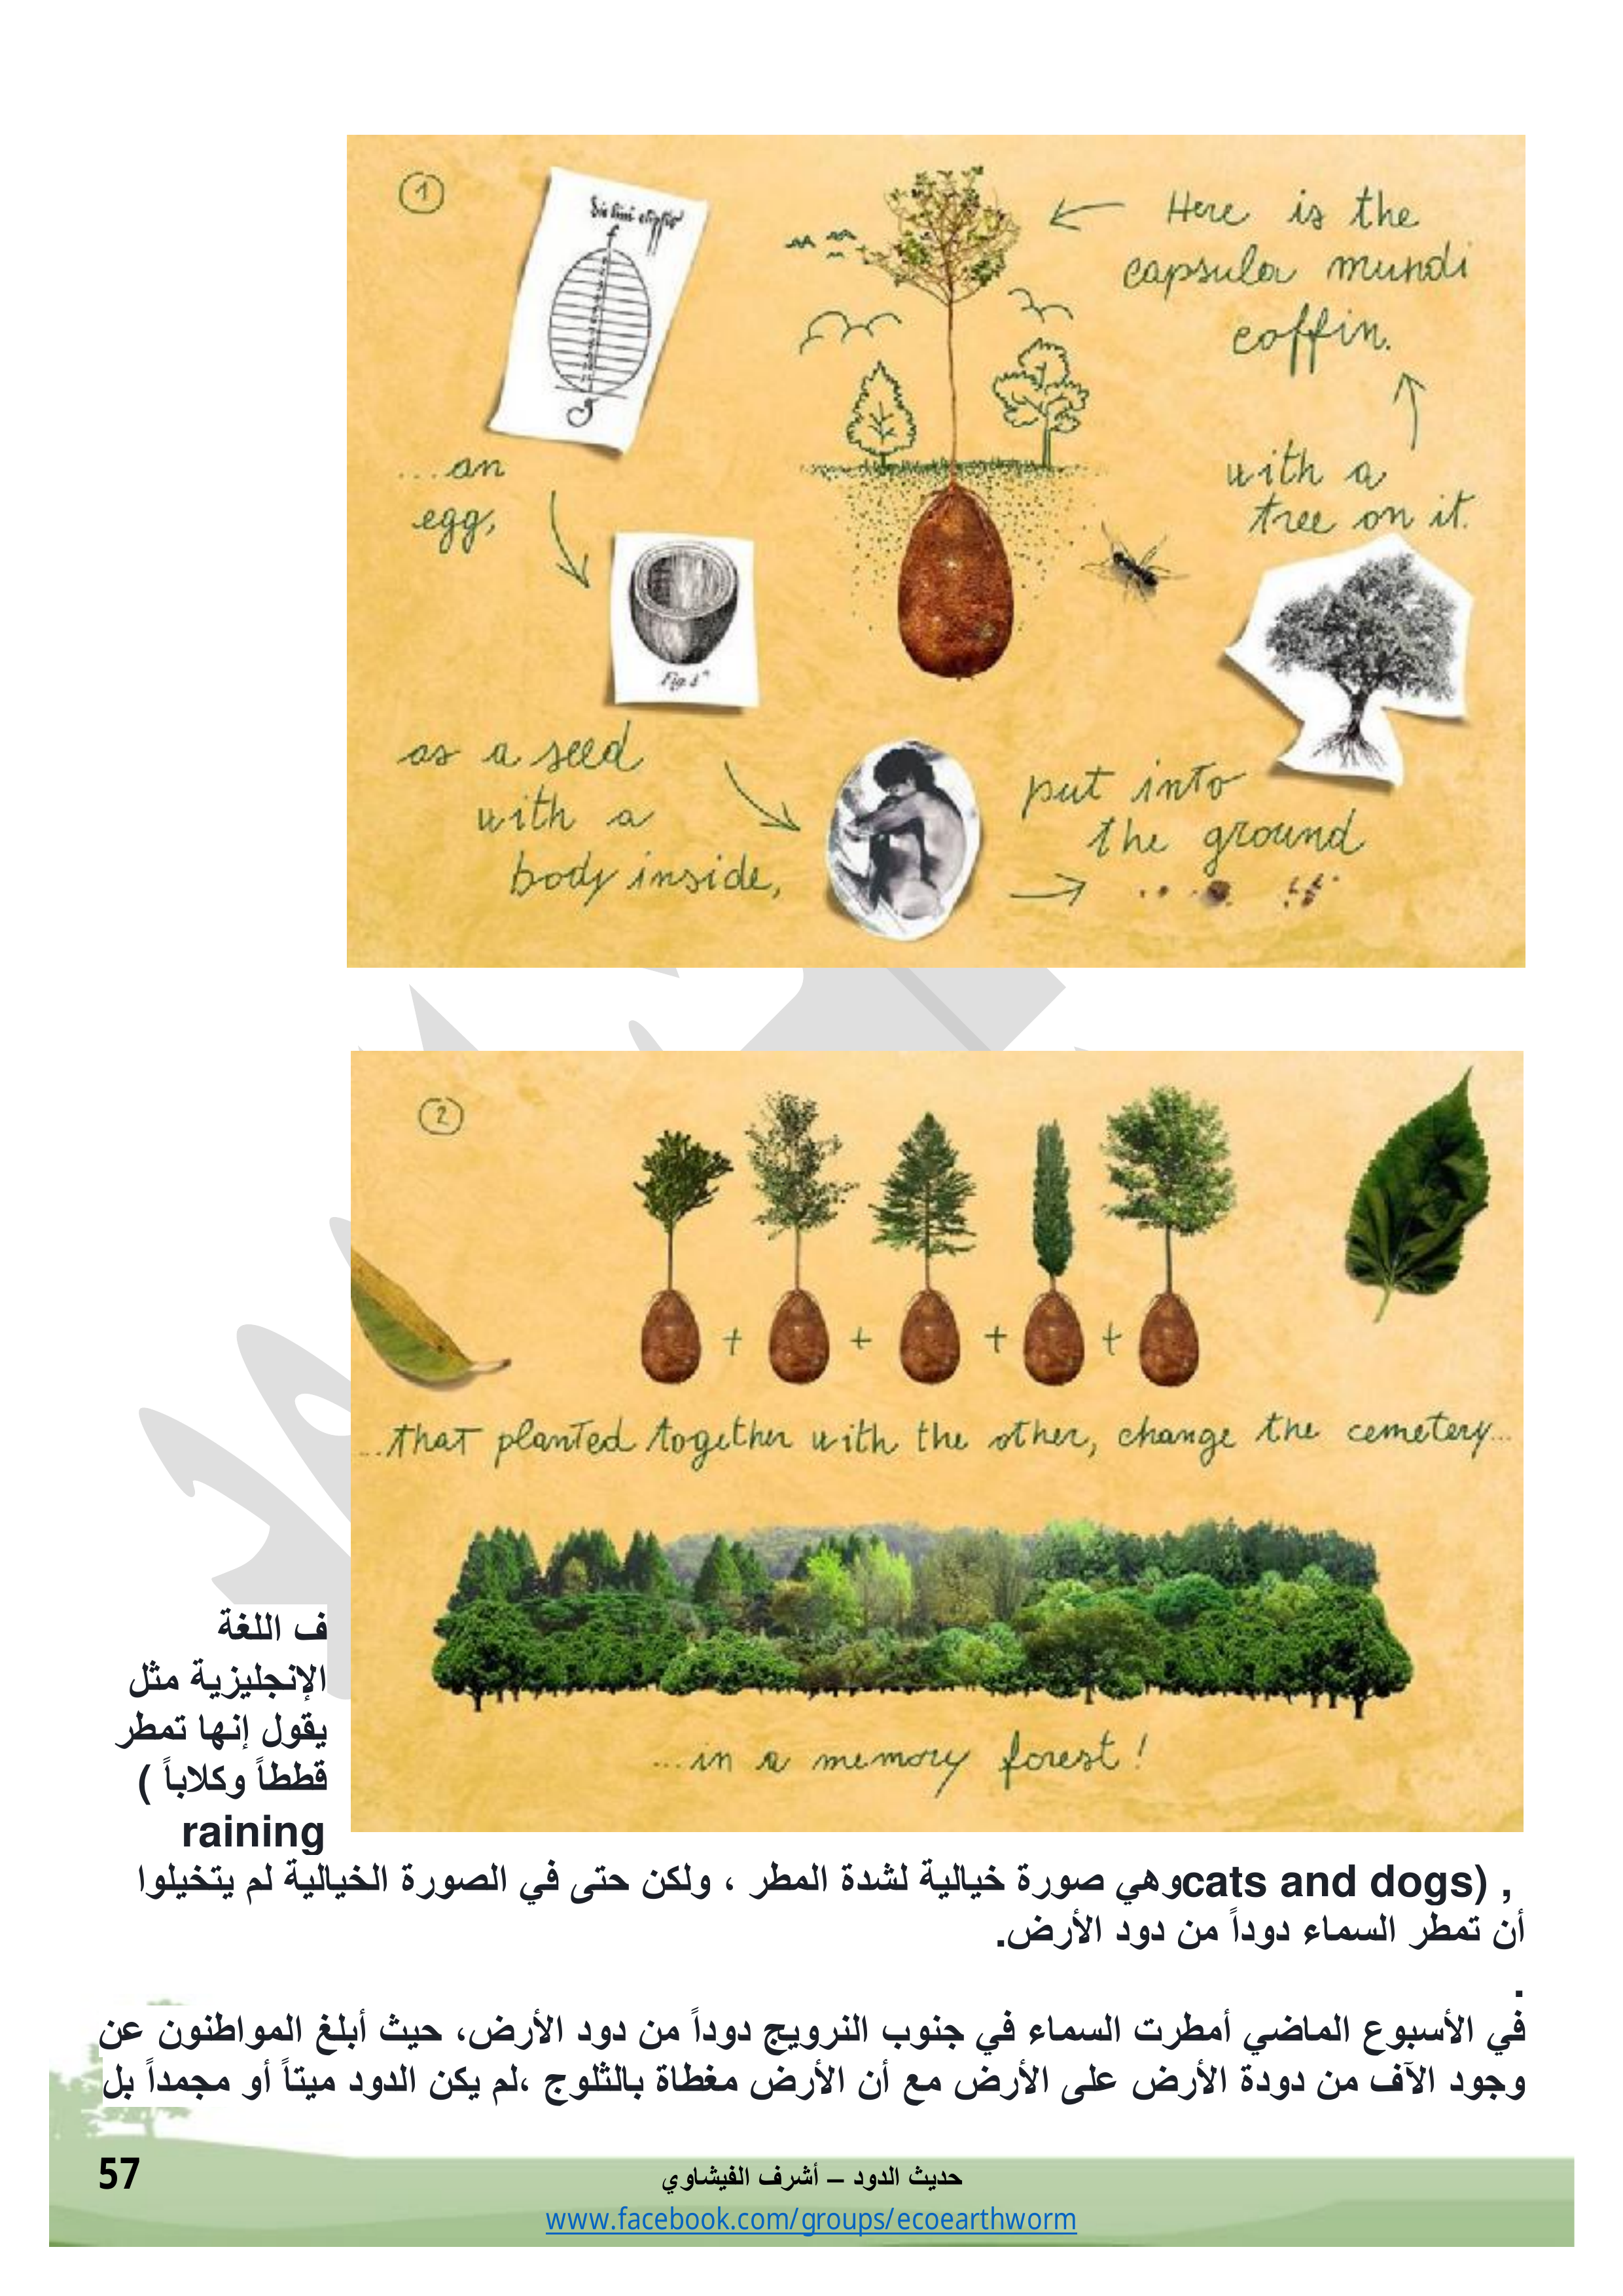 1
Here is the
capsula mundi
coffin.
...an
egg,
with a
tree on it.
as a seed
with a
body inside,
put into
the ground
2
...that planted together with the other, change the cemetery...
...in a memory forest!
ف اللغة
الإنجليزية مثل
يقول إنها تمطر
قططاً وكلاباً (
raining
cats and dogs) , وهي صورة خيالية لشدة المطر ، ولكن حتى في الصورة الخيالية لم يتخيلوا
أن تمطر السماء دوداً من دود الأرض.
.
في الأسبوع الماضي أمطرت السماء في جنوب النرويج دوداً من دود الأرض، حيث أبلغ المواطنون عن
وجود الآف من دودة الأرض على الأرض مع أن الأرض مغطاة بالثلوج ،لم يكن الدود ميتاً أو مجمداً بل
57
حديث الدود – أشرف الفيشاوي
www.facebook.com/groups/ecoearthworm